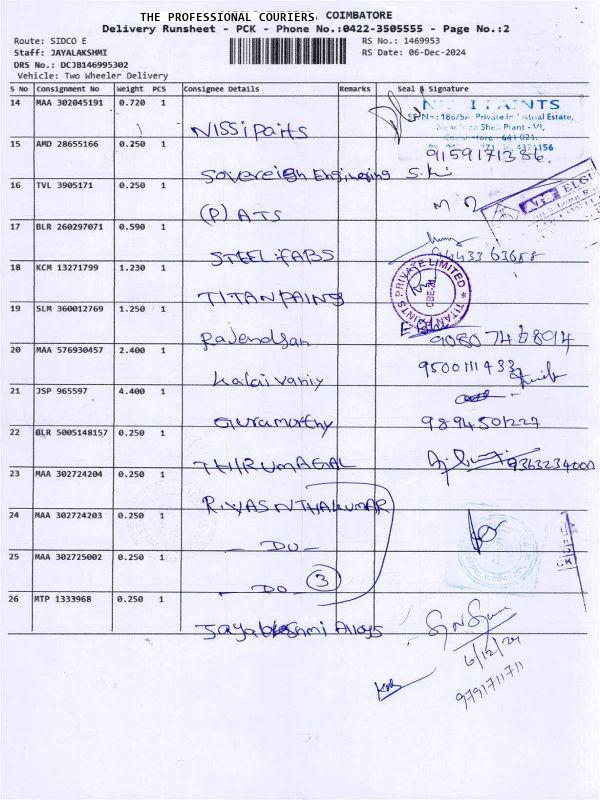 THE PROFESSIONAL COURIERS, COIMBATORE
Delivery Runsheet - PCK - Phone No.:0422-3505555 - Page No.:2
Route: SIDCO E
RS No.: 1469953
Staff: JAYALAKSHMI
RS Date: 06-Dec-2024
DRS No.: DCJB146995302
Vehicle: Two Wheeler Delivery
S No Consignment No Weight PCS Consignee Details Remarks Seal & Signature
14 MAA 302045191 0.720 1
Nissi Paits
15 AMD 28655166 0.250 1
9159171386.
Sovereign Enginering
16 TVL 3905171 0.250 1
(P) ATS
17 BLR 260297071 0.590 1
STEEL FABS
9443363688
18 KCM 13271799 1.230 1
TITAN PAINS
TITAN PAINTS PRIVATE LIMITED
CBE-21
19 SLM 360012769 1.250 1
Rajendran
9080746894
20 MAA 576930457 2.400 1
Kalaivaniy
9500111433
21 JSP 965597 4.400 1
Gurumurthy
9894501227
22 BLR 5005148157 0.250 1
THIRUMAGAL
9363234000
23 MAA 302724204 0.250 1
R.VASNTHAKUMAR
24 MAA 302724203 0.250 1
- DO -
25 MAA 302725002 0.250 1
- DO - 3
26 MTP 1333968 0.250 1
Jayalakshmi Alloys
6/12/24
9791711711